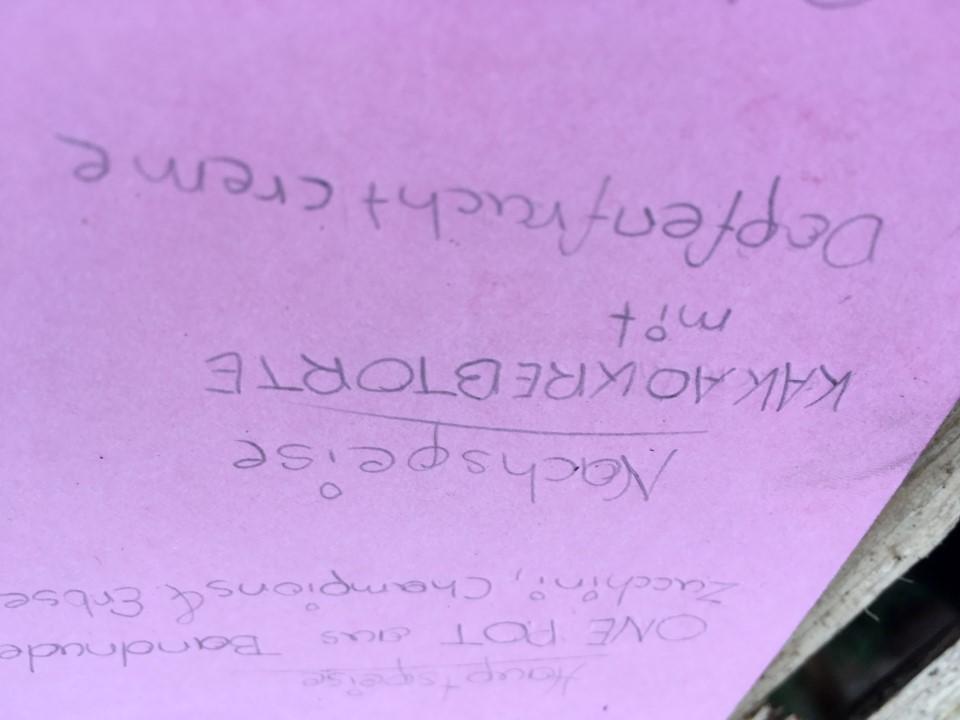 Hauptspeise
ONE POT aus Bandnude
Zucchini, Champions & Erbse
Nachspeise
KAKAOKREBTORTE
mit
Dopfenfruchtcreme